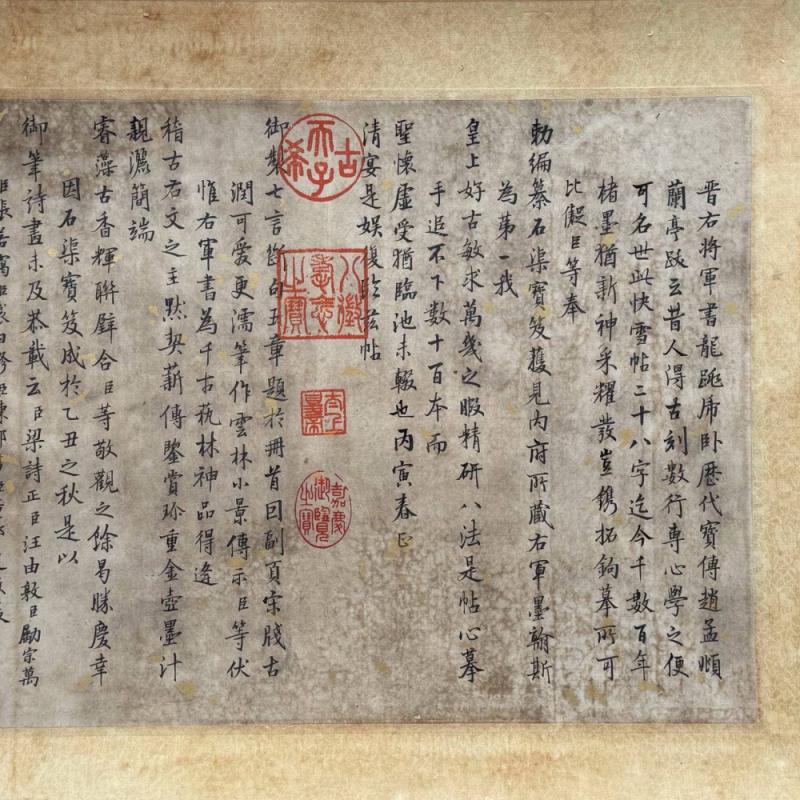 晉右將軍書龍跳虎臥歷代寶傳趙孟頫
蘭亭跋云昔人得古刻數行專心學之便
可名世此快雪帖二十八字迄今千數百年
楮墨猶新神采耀發豈鐫拓鉤摹所可
比儗臣等奉
勅編纂石渠寶笈獲見內府所藏右軍墨翰斯
為第一我
皇上好古敏求萬幾之暇精研八法是帖心摹
手追不下數十百本而
聖懷虛受猶臨池未輟也丙寅春正
清宴是娛復臨茲帖
古希天子
八徵耄念之寶
嘉慶御覽之寶
御製七言斷句五章題於冊首回副頁宋牋古
潤可愛更濡筆作雲林小景傳示臣等伏
惟右軍書為千古秇林神品得逢
稽古右文之主默契薪傳鑒賞珍重金壺墨汁
親灑簡端
睿藻古香輝聯璧合臣等敬觀之餘曷勝慶幸
因石渠寶笈成於乙丑之秋是以
御筆詩畫未及恭載云臣梁詩正臣汪由敦臣勵宗萬